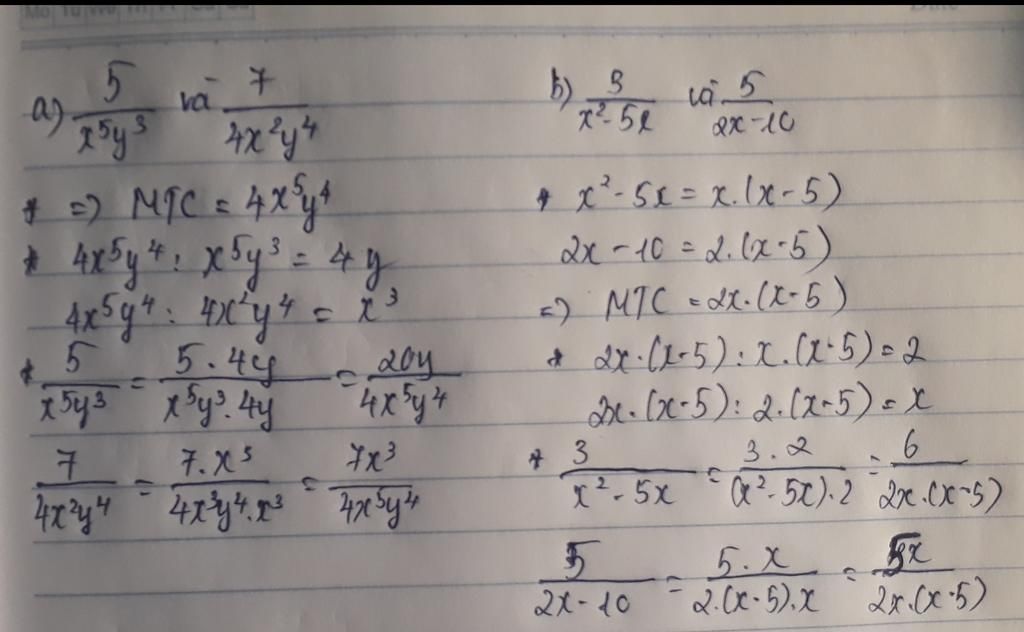 Mo Tu We Th Fr Sa Su
Date
a) 5/(x⁵y³) và 7/(4x²y⁴)
* => MTC = 4x⁵y⁴
* 4x⁵y⁴ : x⁵y³ = 4y
4x⁵y⁴ : 4x²y⁴ = x³
* 5/(x⁵y³) = (5 . 4y)/(x⁵y³ . 4y) = 20y/(4x⁵y⁴)
7/(4x²y⁴) = (7 . x³)/(4x³y⁴ . x³) = 7x³/(4x⁵y⁴)
b) 3/(x² - 5x) và 5/(2x - 10)
* x² - 5x = x . (x - 5)
2x - 10 = 2 . (x - 5)
=> MTC = 2x . (x - 5)
* 2x . (x - 5) : x . (x - 5) = 2
2x . (x - 5) : 2 . (x - 5) = x
* 3/(x² - 5x) = (3 . 2)/((x² - 5x) . 2) = 6/(2x . (x - 5))
5/(2x - 10) = (5 . x)/(2 . (x - 5) . x) = 5x/(2x . (x - 5))